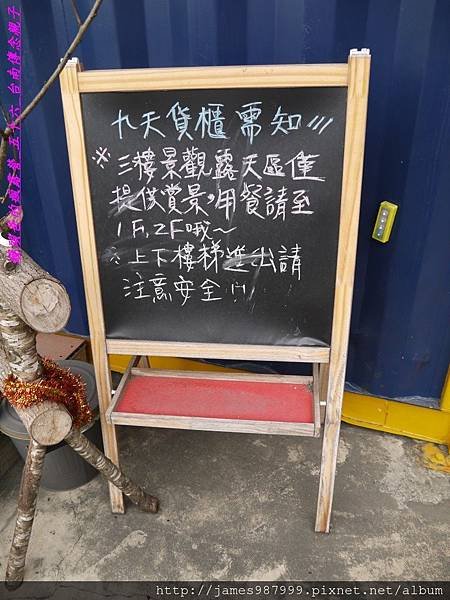 九天貨櫃需知〃
※三樓景觀露天區僅
提供賞景,用餐請至
1F,2F哦~
※上下樓梯進出請
注意安全!!
http://james987999.pixnet.net/album